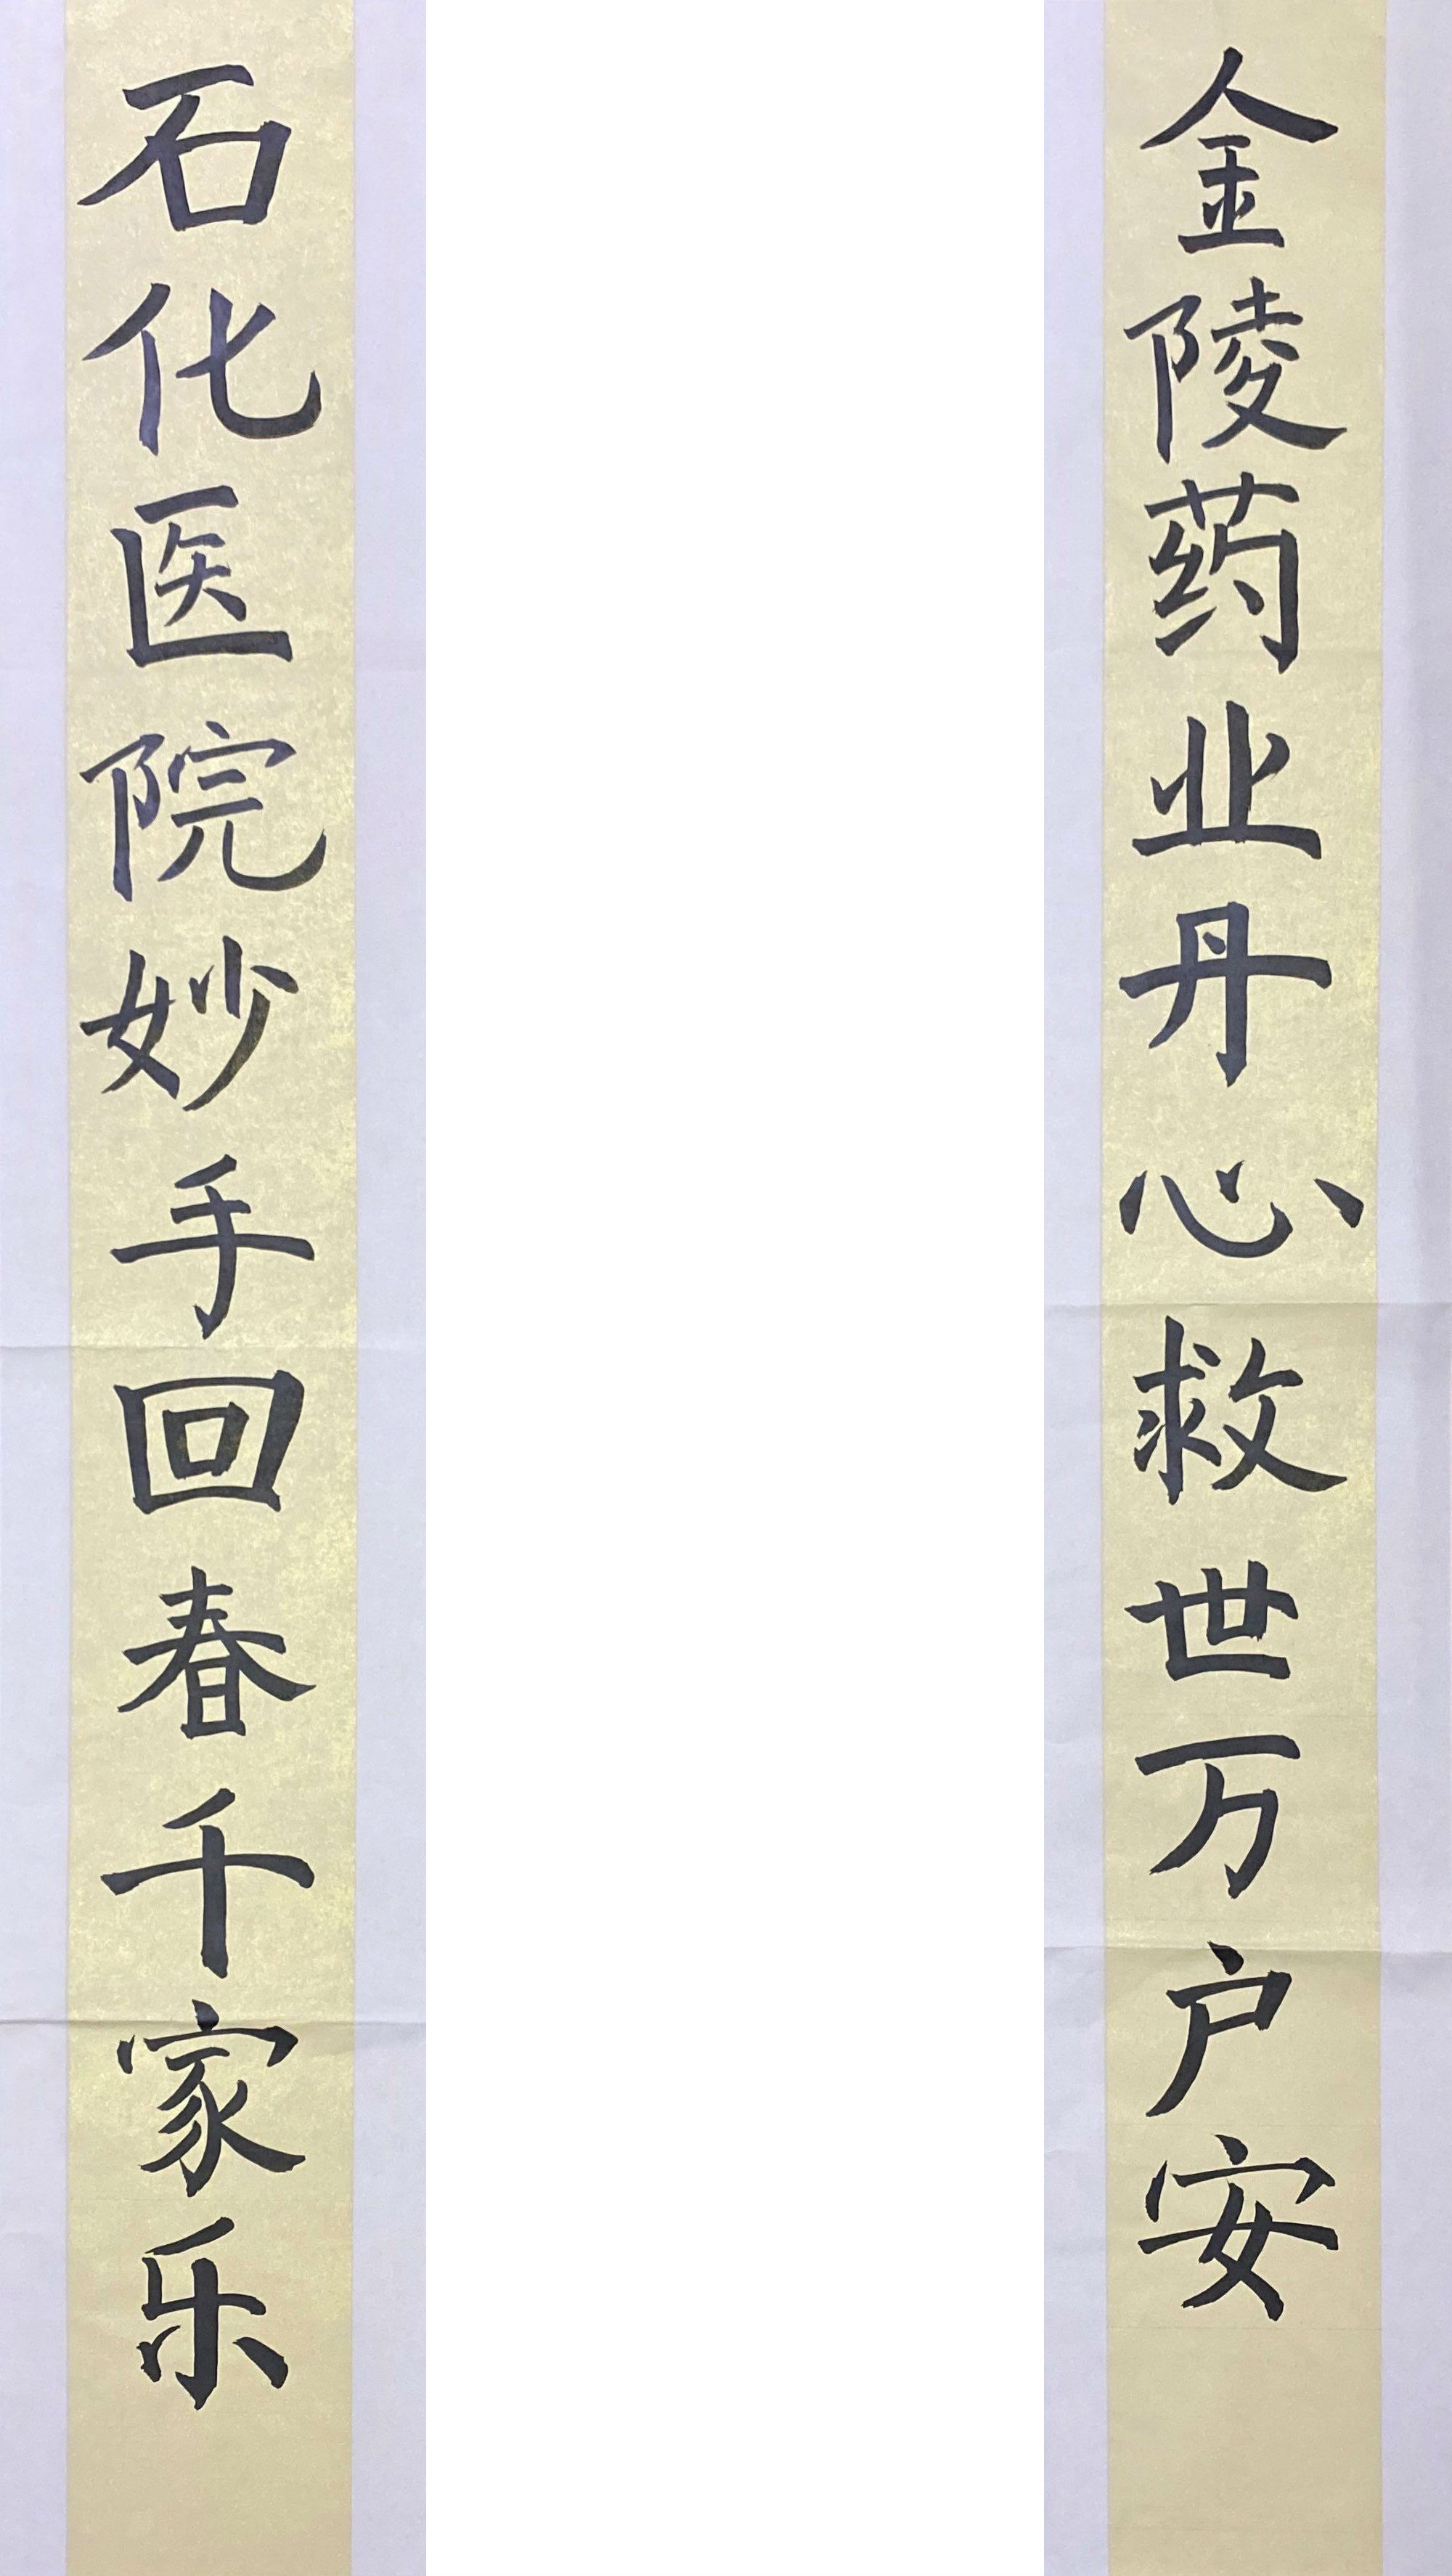 金陵药业丹心救世万户安
石化医院妙手回春千家乐